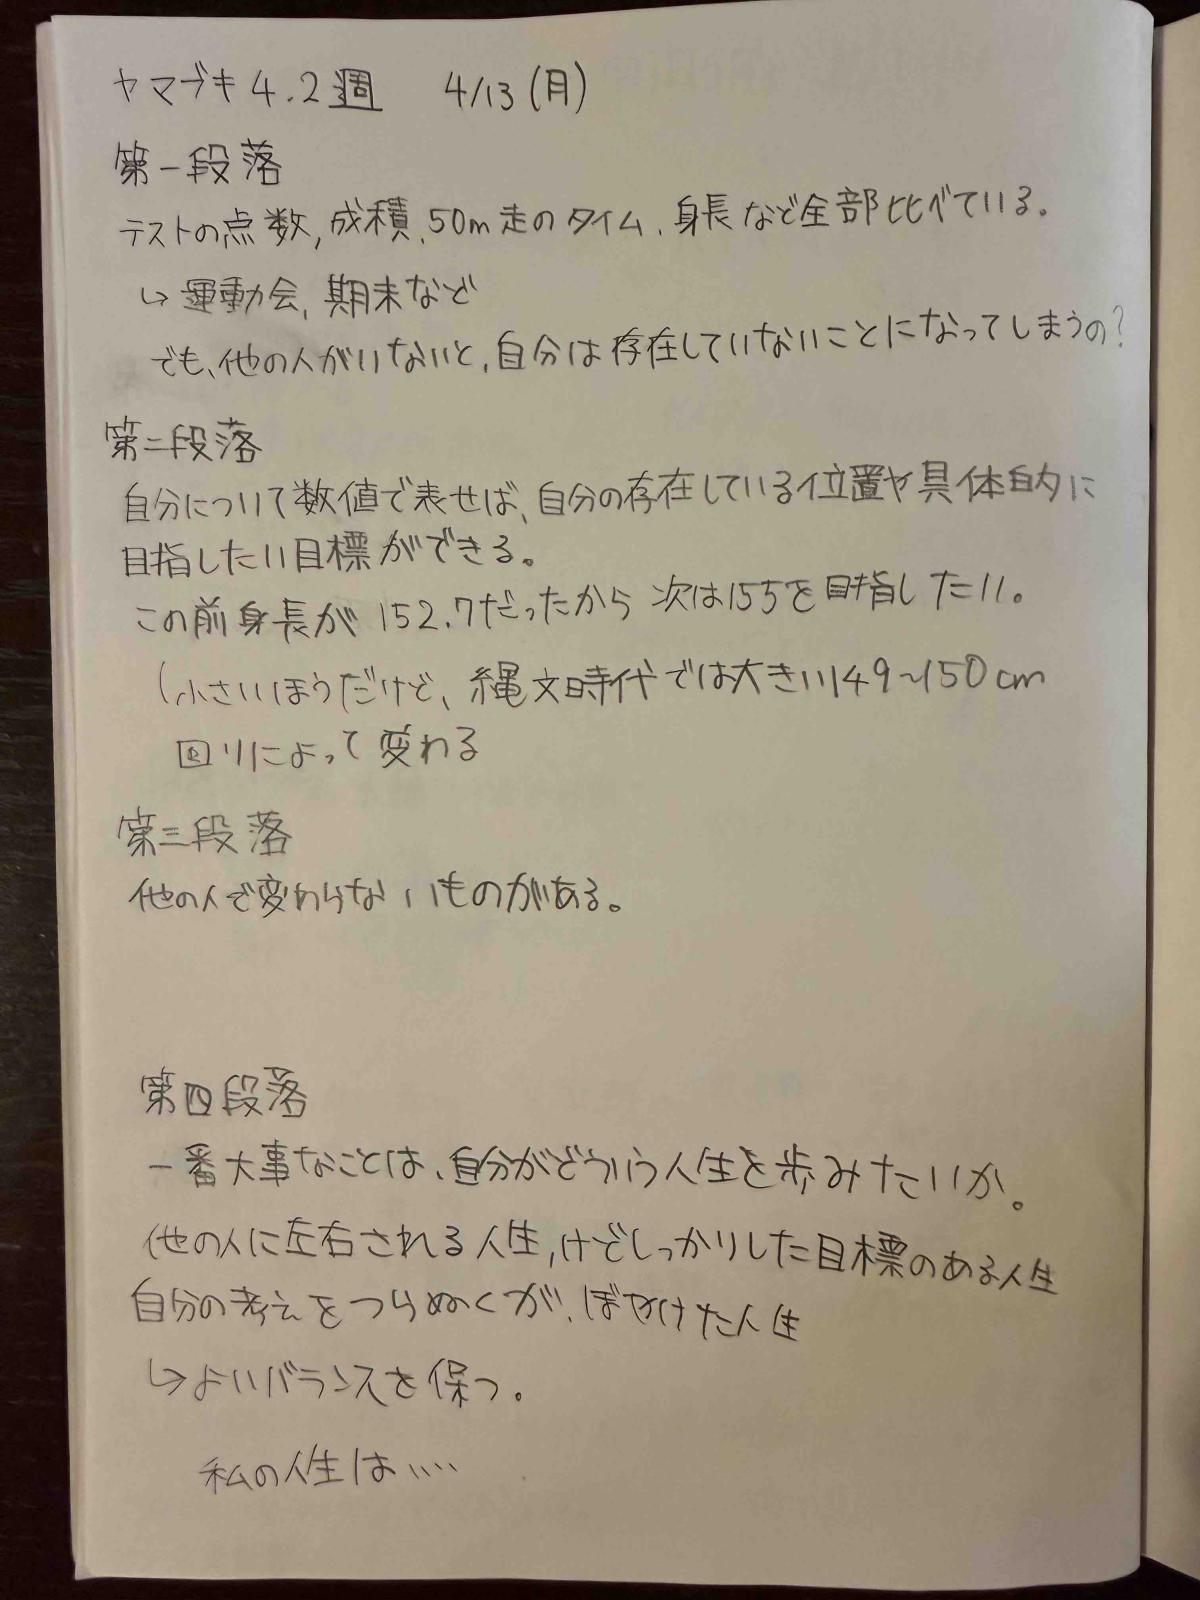 ヤマブキ4.2週 4/13(月)
第一段落
テストの点数,成積,50m走のタイム,身長など全部比べている。
↳運動会,期末など
でも、他の人がいないと,自分は存在していないことになってしまうの?
第二段落
自分について数値で表せば、自分の存在している位置や具体的に
目指したい目標ができる。
この前身長が152.7だったから次は155を目指したい。
(小さいほうだけど、縄文時代では大きい149~150cm
回りによって変わる
第三段落
他の人で変わらないものがある。
第四段落
一番大事なことは、自分がどういう人生を歩みたいか。
他の人に左右される人生,けどしっかりした目標のある人生
自分の考えをつらぬくが、ぼやけた人生
↳よいバランスを保つ。
私の人生は....